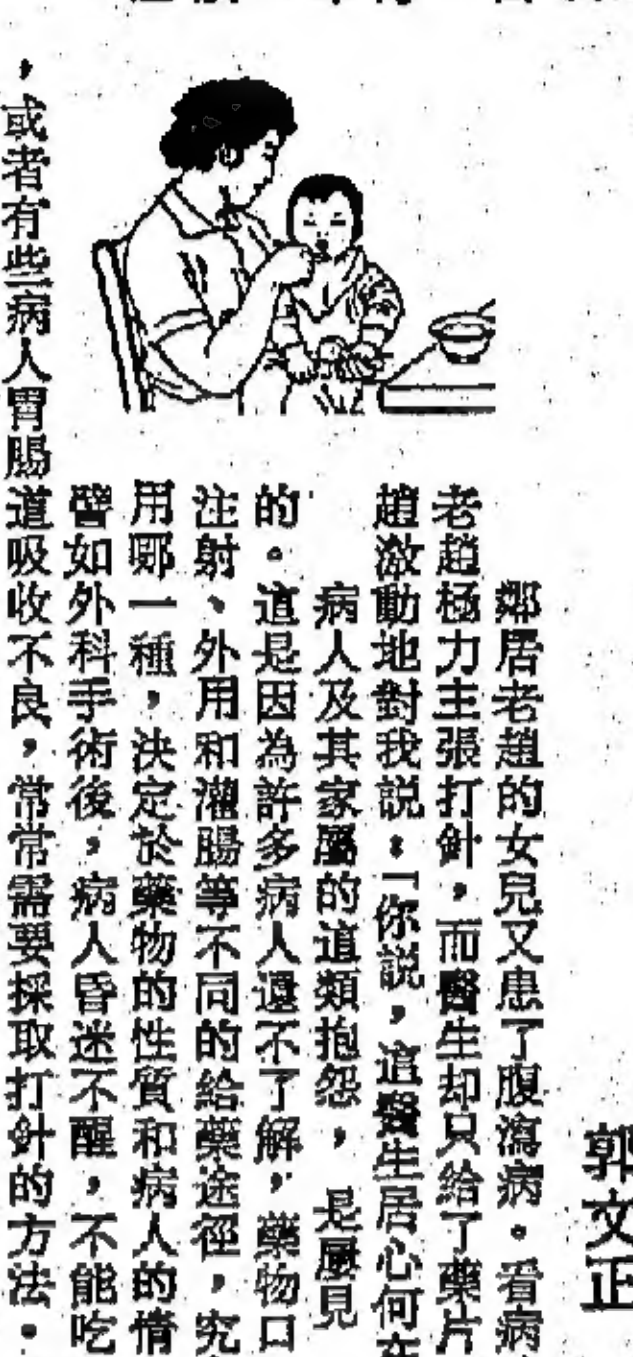 郭文正
鄰居老趙的女兒又患了腹瀉病。看病
老趙極力主張打針，而醫生却只給了藥片
趙激動地對我説：「你説，這醫生居心何在
病人及其家屬的這類抱怨，是屢見
的。這是因為許多病人還不了解，藥物口
注射、外用和灌腸等不同的給藥途徑，究
用哪一種，決定於藥物的性質和病人的情
譬如外科手術後，病人昏迷不醒，不能吃
，或者有些病人胃腸道吸收不良，常常需要採取打針的方法。